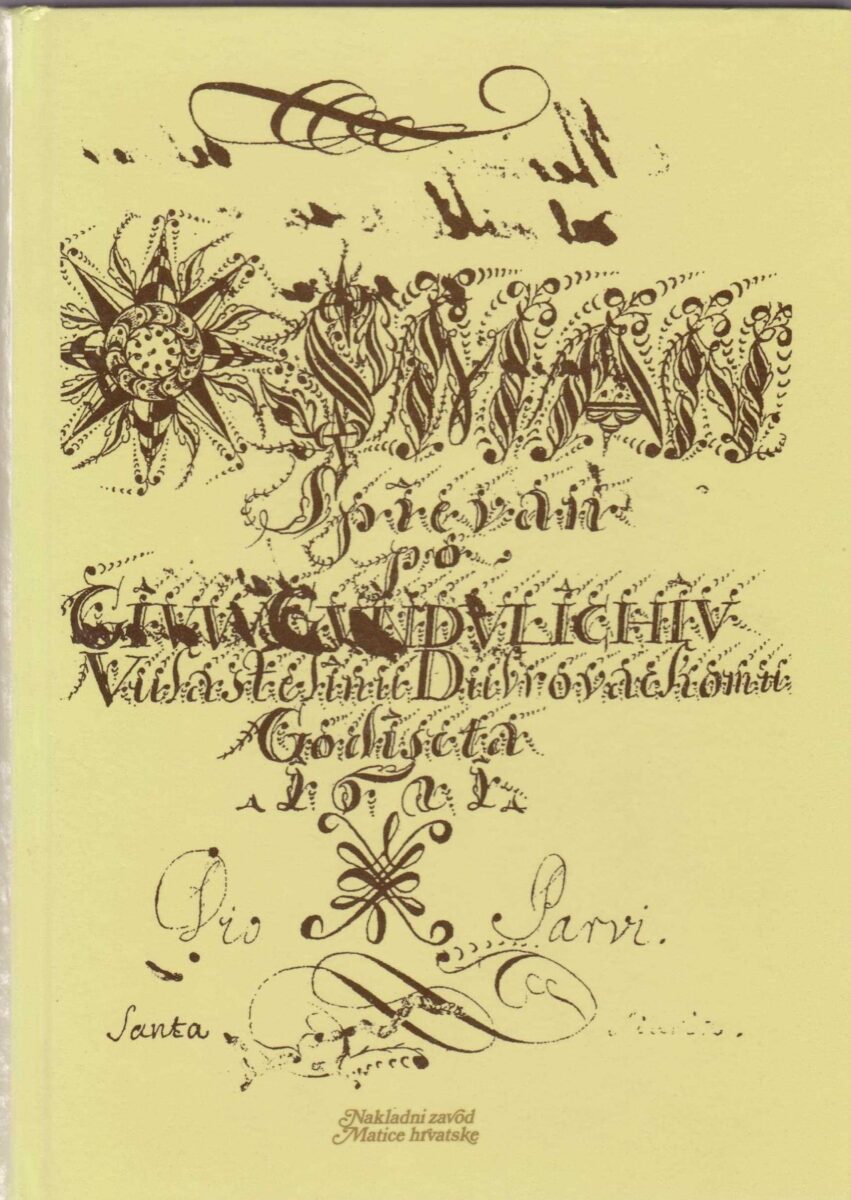 OSMAN
Spievan
po
GIVV GVNDVLICHIV
Vllastelinu Dubrovackomu
Godiscta
Dio Parvi.
Santa
Nakladni zavod
Matice hrvatske